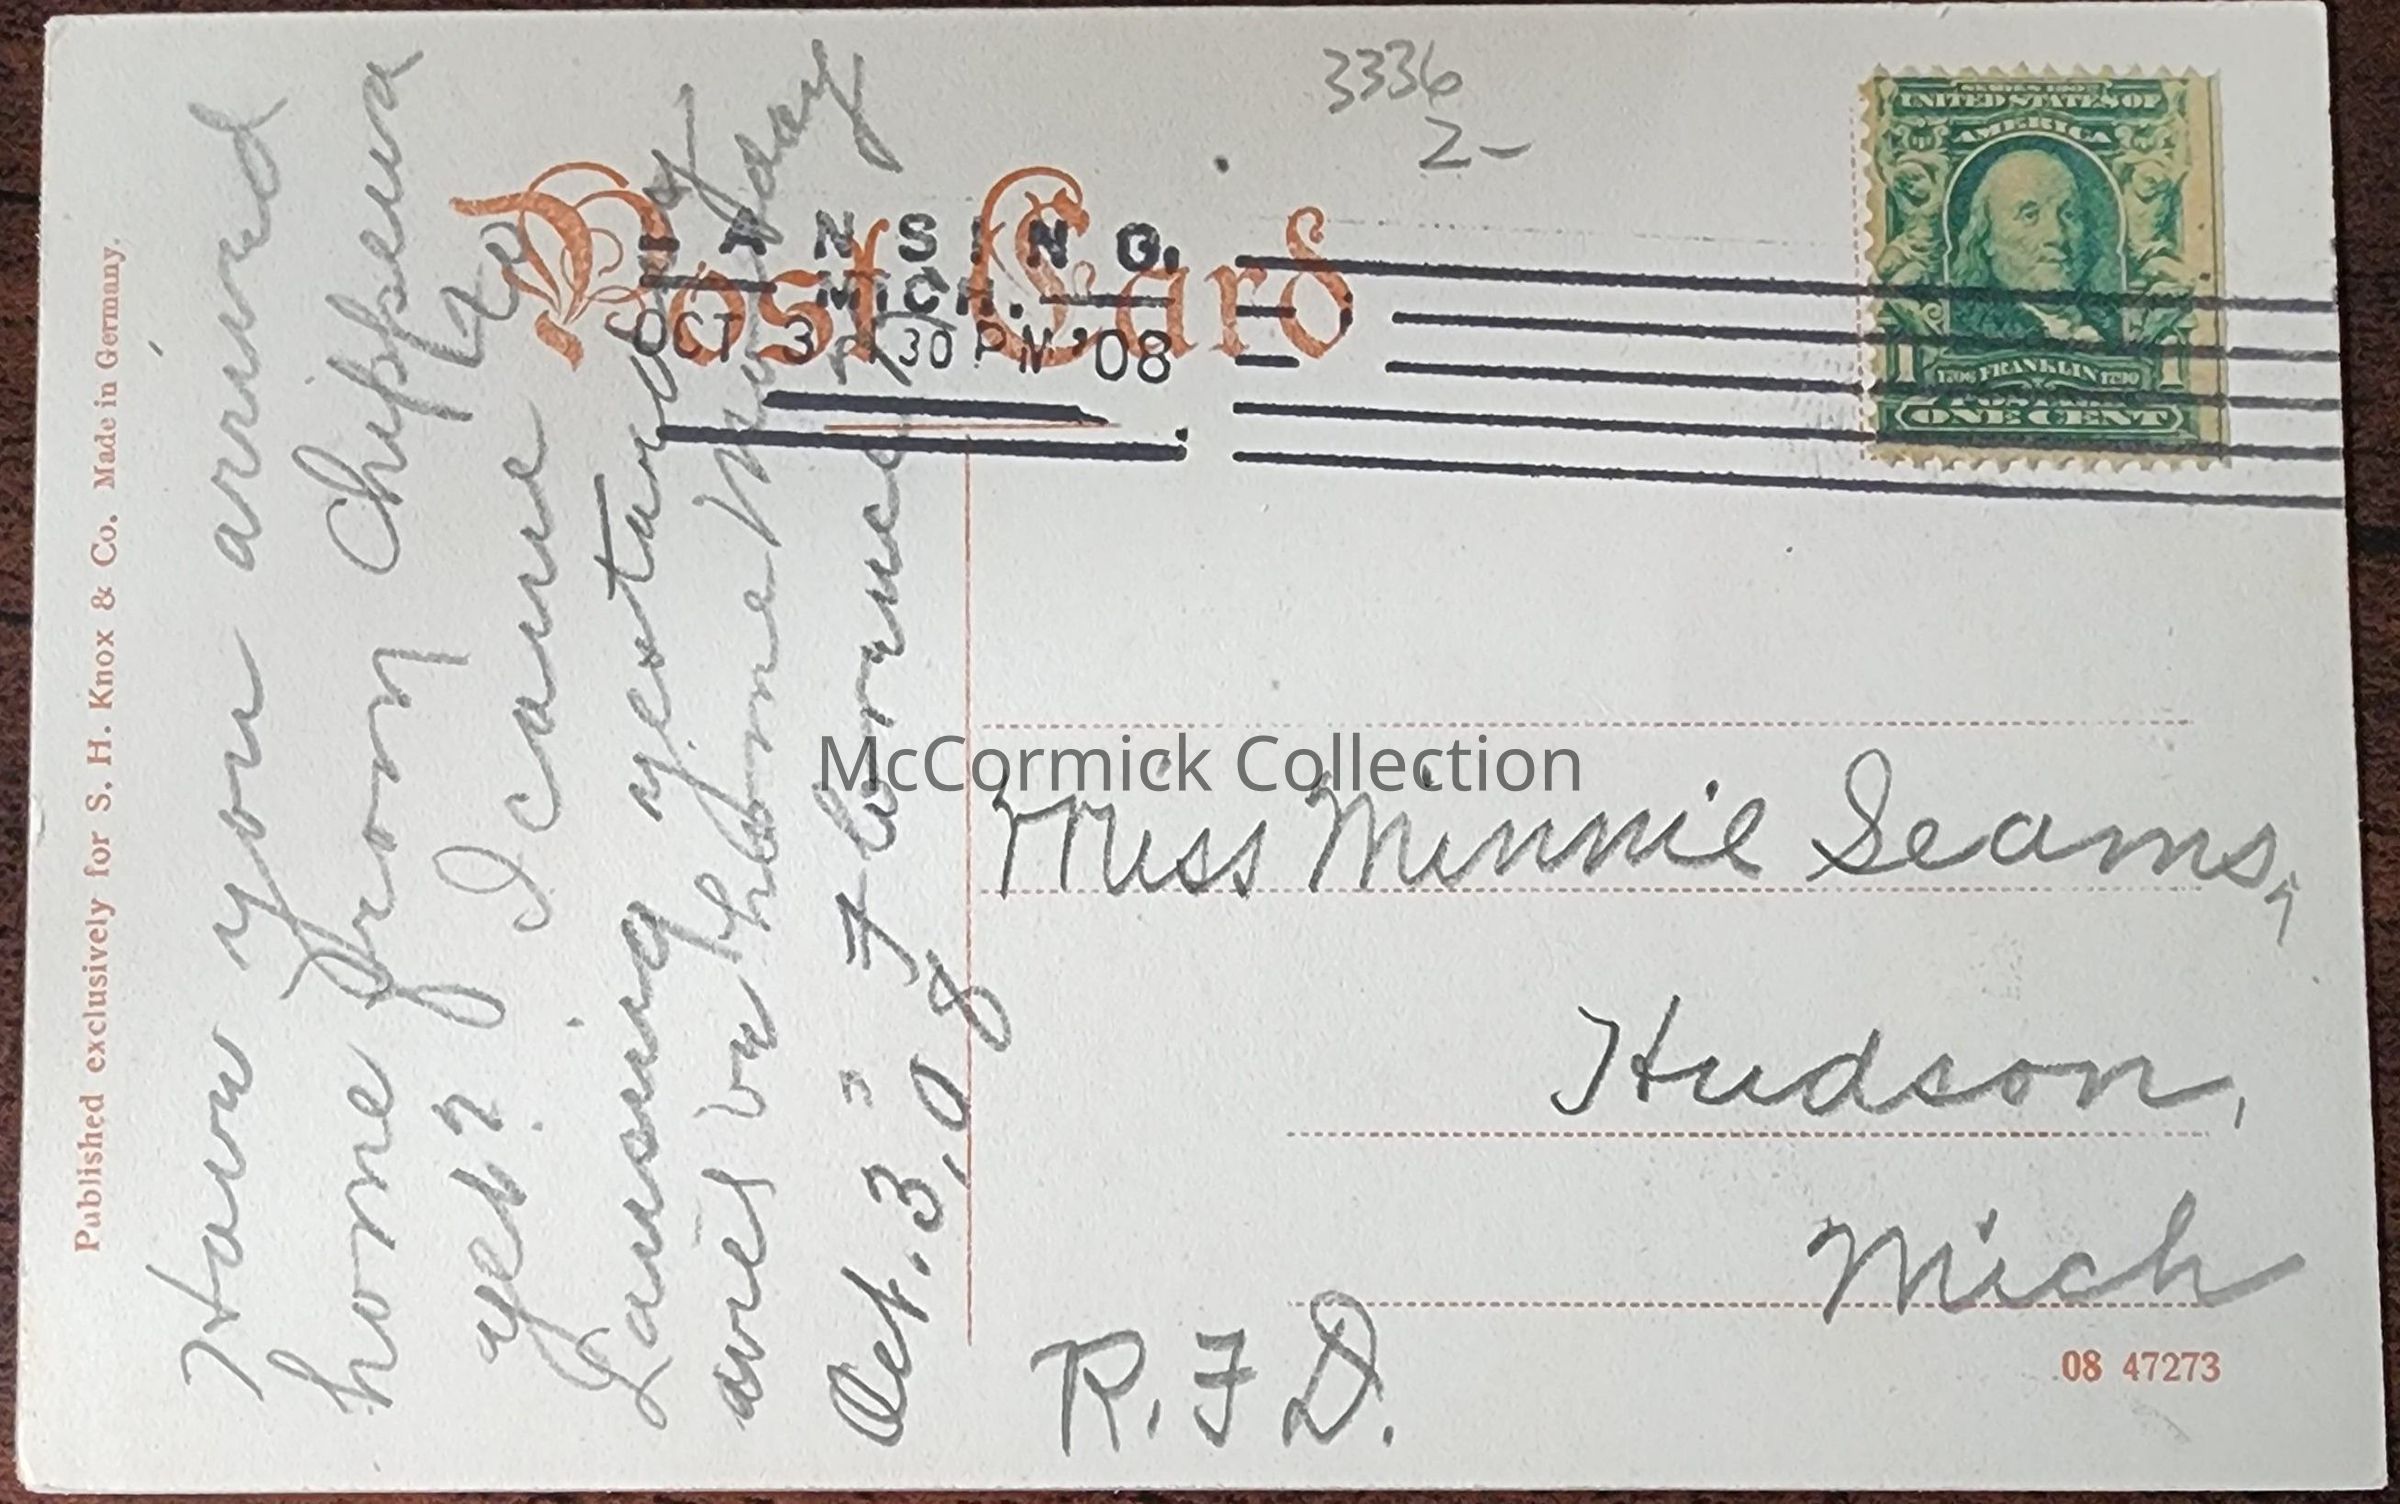 Published exclusively for S. H. Knox & Co. Made in Germany.
Have you arrived
home from Chippewa
yet? I came to
Lansing yestarday
will be home Monday
Oct. 3, 08 Florence
3336
2-
Post Card
LANSING.
MICH.
OCT 3 30 PM '08
SERIES 1902
UNITED STATES OF
AMERICA
1 1706 FRANKLIN 1790 1
POSTAGE
ONE CENT
McCormick Collection
Miss Minnie Seams,
Hudson,
Mich
R.F.D.
08 47273